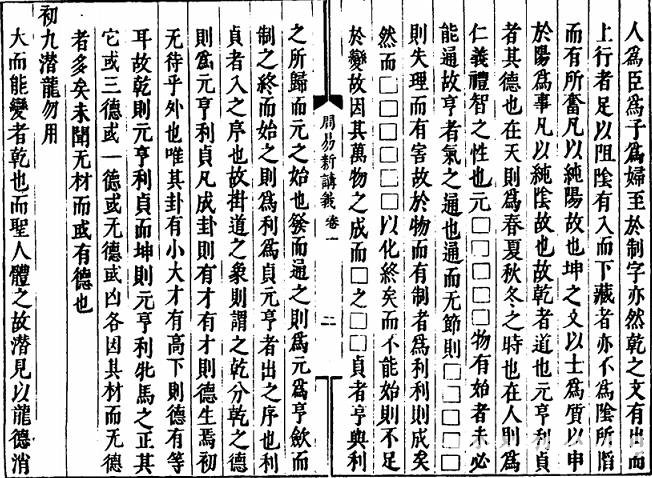 人爲臣爲子爲婦至於制字亦然乾之文有出而
上行者足以阻陰有入而下藏者亦不爲陰所
而有所奮凡以純陽故也坤之文以士爲質以申
於陽爲事凡以純陰故也故乾者道也元亨利貞
者其德也在天則爲春夏秋冬之時也在人則爲
仁義禮智之性也元□□□□□物有始者未必
能通故亨者氣之通也通而无節則□□□□
則失理而有害故於物而有制者爲利利則成矣
然而□□□□□□以化終矣而不能始則不足
於變故因其萬物之成而□之□□貞者亨與利
周易新講義 卷一
二
之所歸而元之始也發而通之則爲元爲亨歛而
制之終而始之則爲利爲貞元亨者出之序也利
貞者入之序也故掛道之象則謂之乾分乾之德
則爲元亨利貞凡成卦則有才有才則德生焉初
无待乎外也唯其卦有小大才有高下則德有等
耳故乾則元亨利貞而坤則元亨利牝馬之正其
它或三德或一德或无德或凶各因其材而无德
者多矣未聞无材而或有德也
初九潛龍勿用
大而能變者乾也而聖人體之故潛見以龍德消